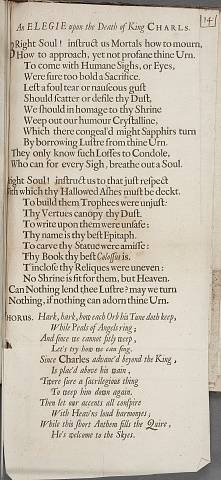 141
An ELEGIE upon the Death of King CHARLS.
Right Soul! instruct us Mortals how to mourn,
How to approach, yet not profane thine Urn.
To come with Humane Sighs, or Eyes,
Were sure too bold a Sacrifice.
Left a foul tear or nauseous gust
Should scatter or defile thy Dust.
We should in homage to thy Shrine
Weep out our humour Crystalline,
Which there congeal'd might Sapphirs turn
By borrowing Lustre from thine Urn.
They only know such Losses to Condole,
Who can for every Sigh, breathe out a Soul.
right Soul! instruct us to that just respect
With which thy Hallowed Ashes must be deckt.
To build them Trophees were unjust:
Thy Vertues canopy thy Dust.
To write upon them were unsafe:
Thy name is thy best Epitaph.
To carve thy Statue were amisse:
Thy Book thy best Colossus is.
T'inclose thy Reliques were uneven:
No Shrine is fit for them, but Heaven.
Can Nothing lend thee Lustre? may we turn
Nothing, if nothing can adorn thine Urn.
HORUS. Hark, hark, how each Orb his Tune doth keep,
While Peals of Angels ring;
And since we cannot fitly weep,
Let's try how we can sing.
Since Charles advanc'd beyond the King,
Is plac'd above his wain,
'Twere sure a sacrilegious thing
To weep him down again.
Then let our accents all conspire
With Heav'ns loud harmonyes;
While this short Anthem fills the Quire,
He's welcome to the Skyes.